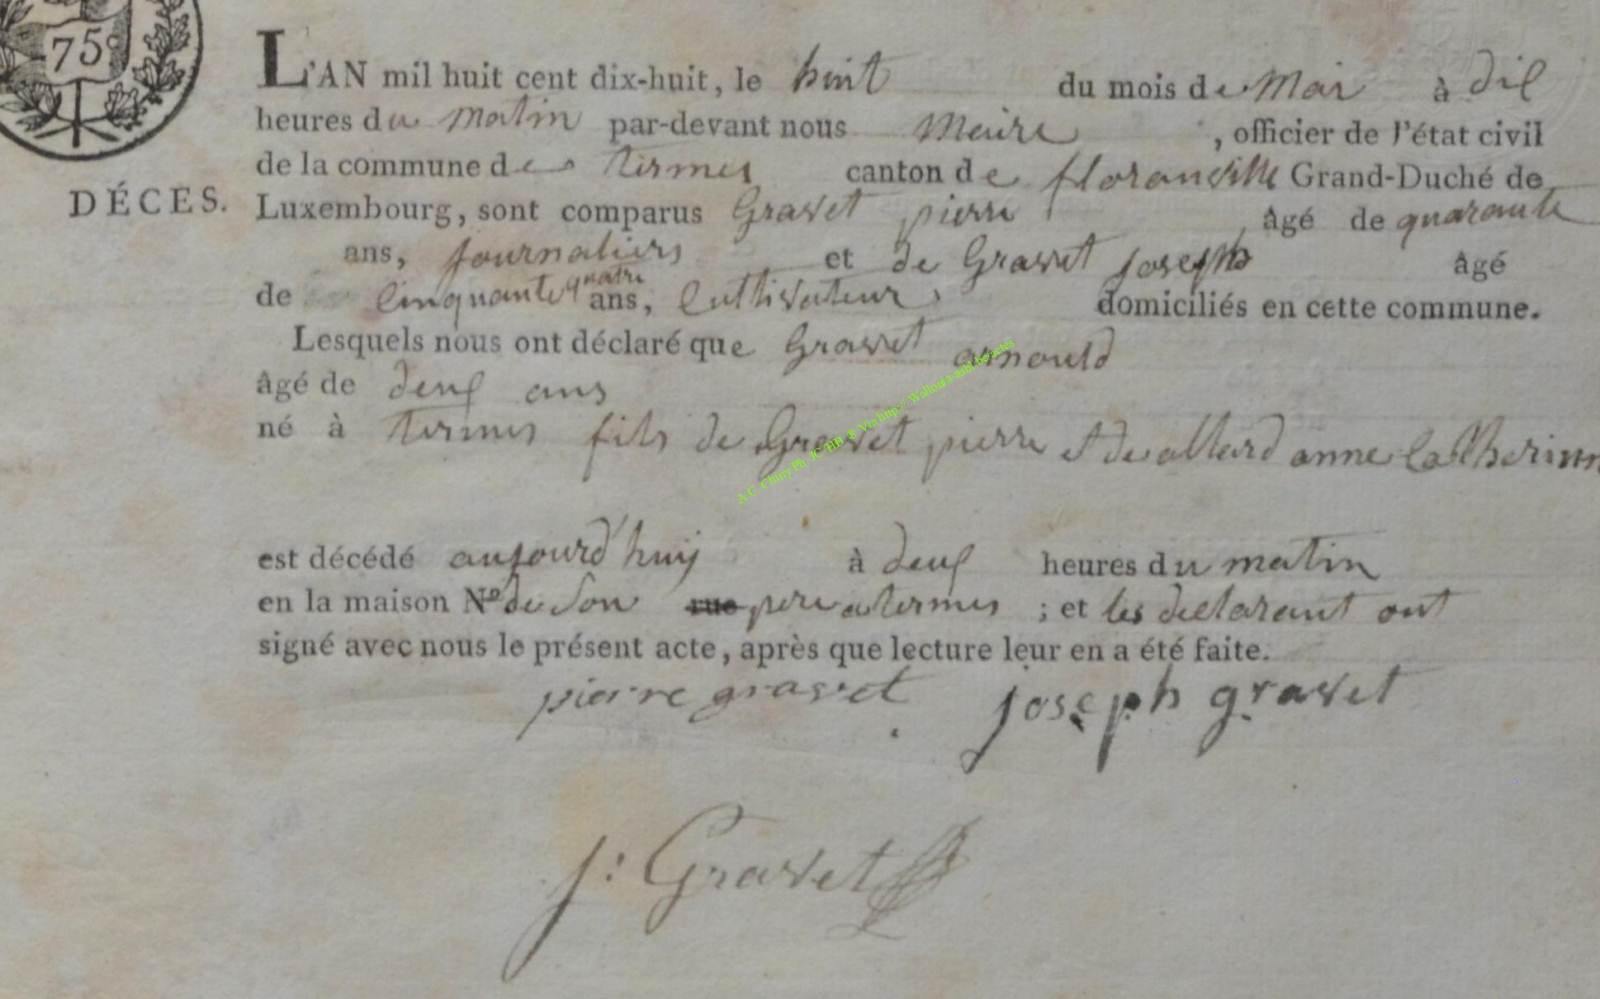 75c
L'AN mil huit cent dix-huit, le huit du mois de Mai à dix
heures du matin par-devant nous Meire, officier de l'état civil
de la commune de termes canton de floranville Grand-Duché de
DÉCES.
Luxembourg, sont comparus Gravet pierre âgé de quarante
ans, journaliers et de Gravet joseph âgé
de cinquante quatre ans, Cultivateur, domiciliés en cette commune.
Lesquels nous ont déclaré que Gravet arnould
âgé de deux ans
né à termes fils de Gravet pierre et de allard anne Catherinne
est décédé aujourd'huij à deux heures du matin
en la maison No de son rue pere a termes ; et les declarant ont
signé avec nous le présent acte, après que lecture leur en a été faite.
pierre gravet joseph gravet
j: Gravet